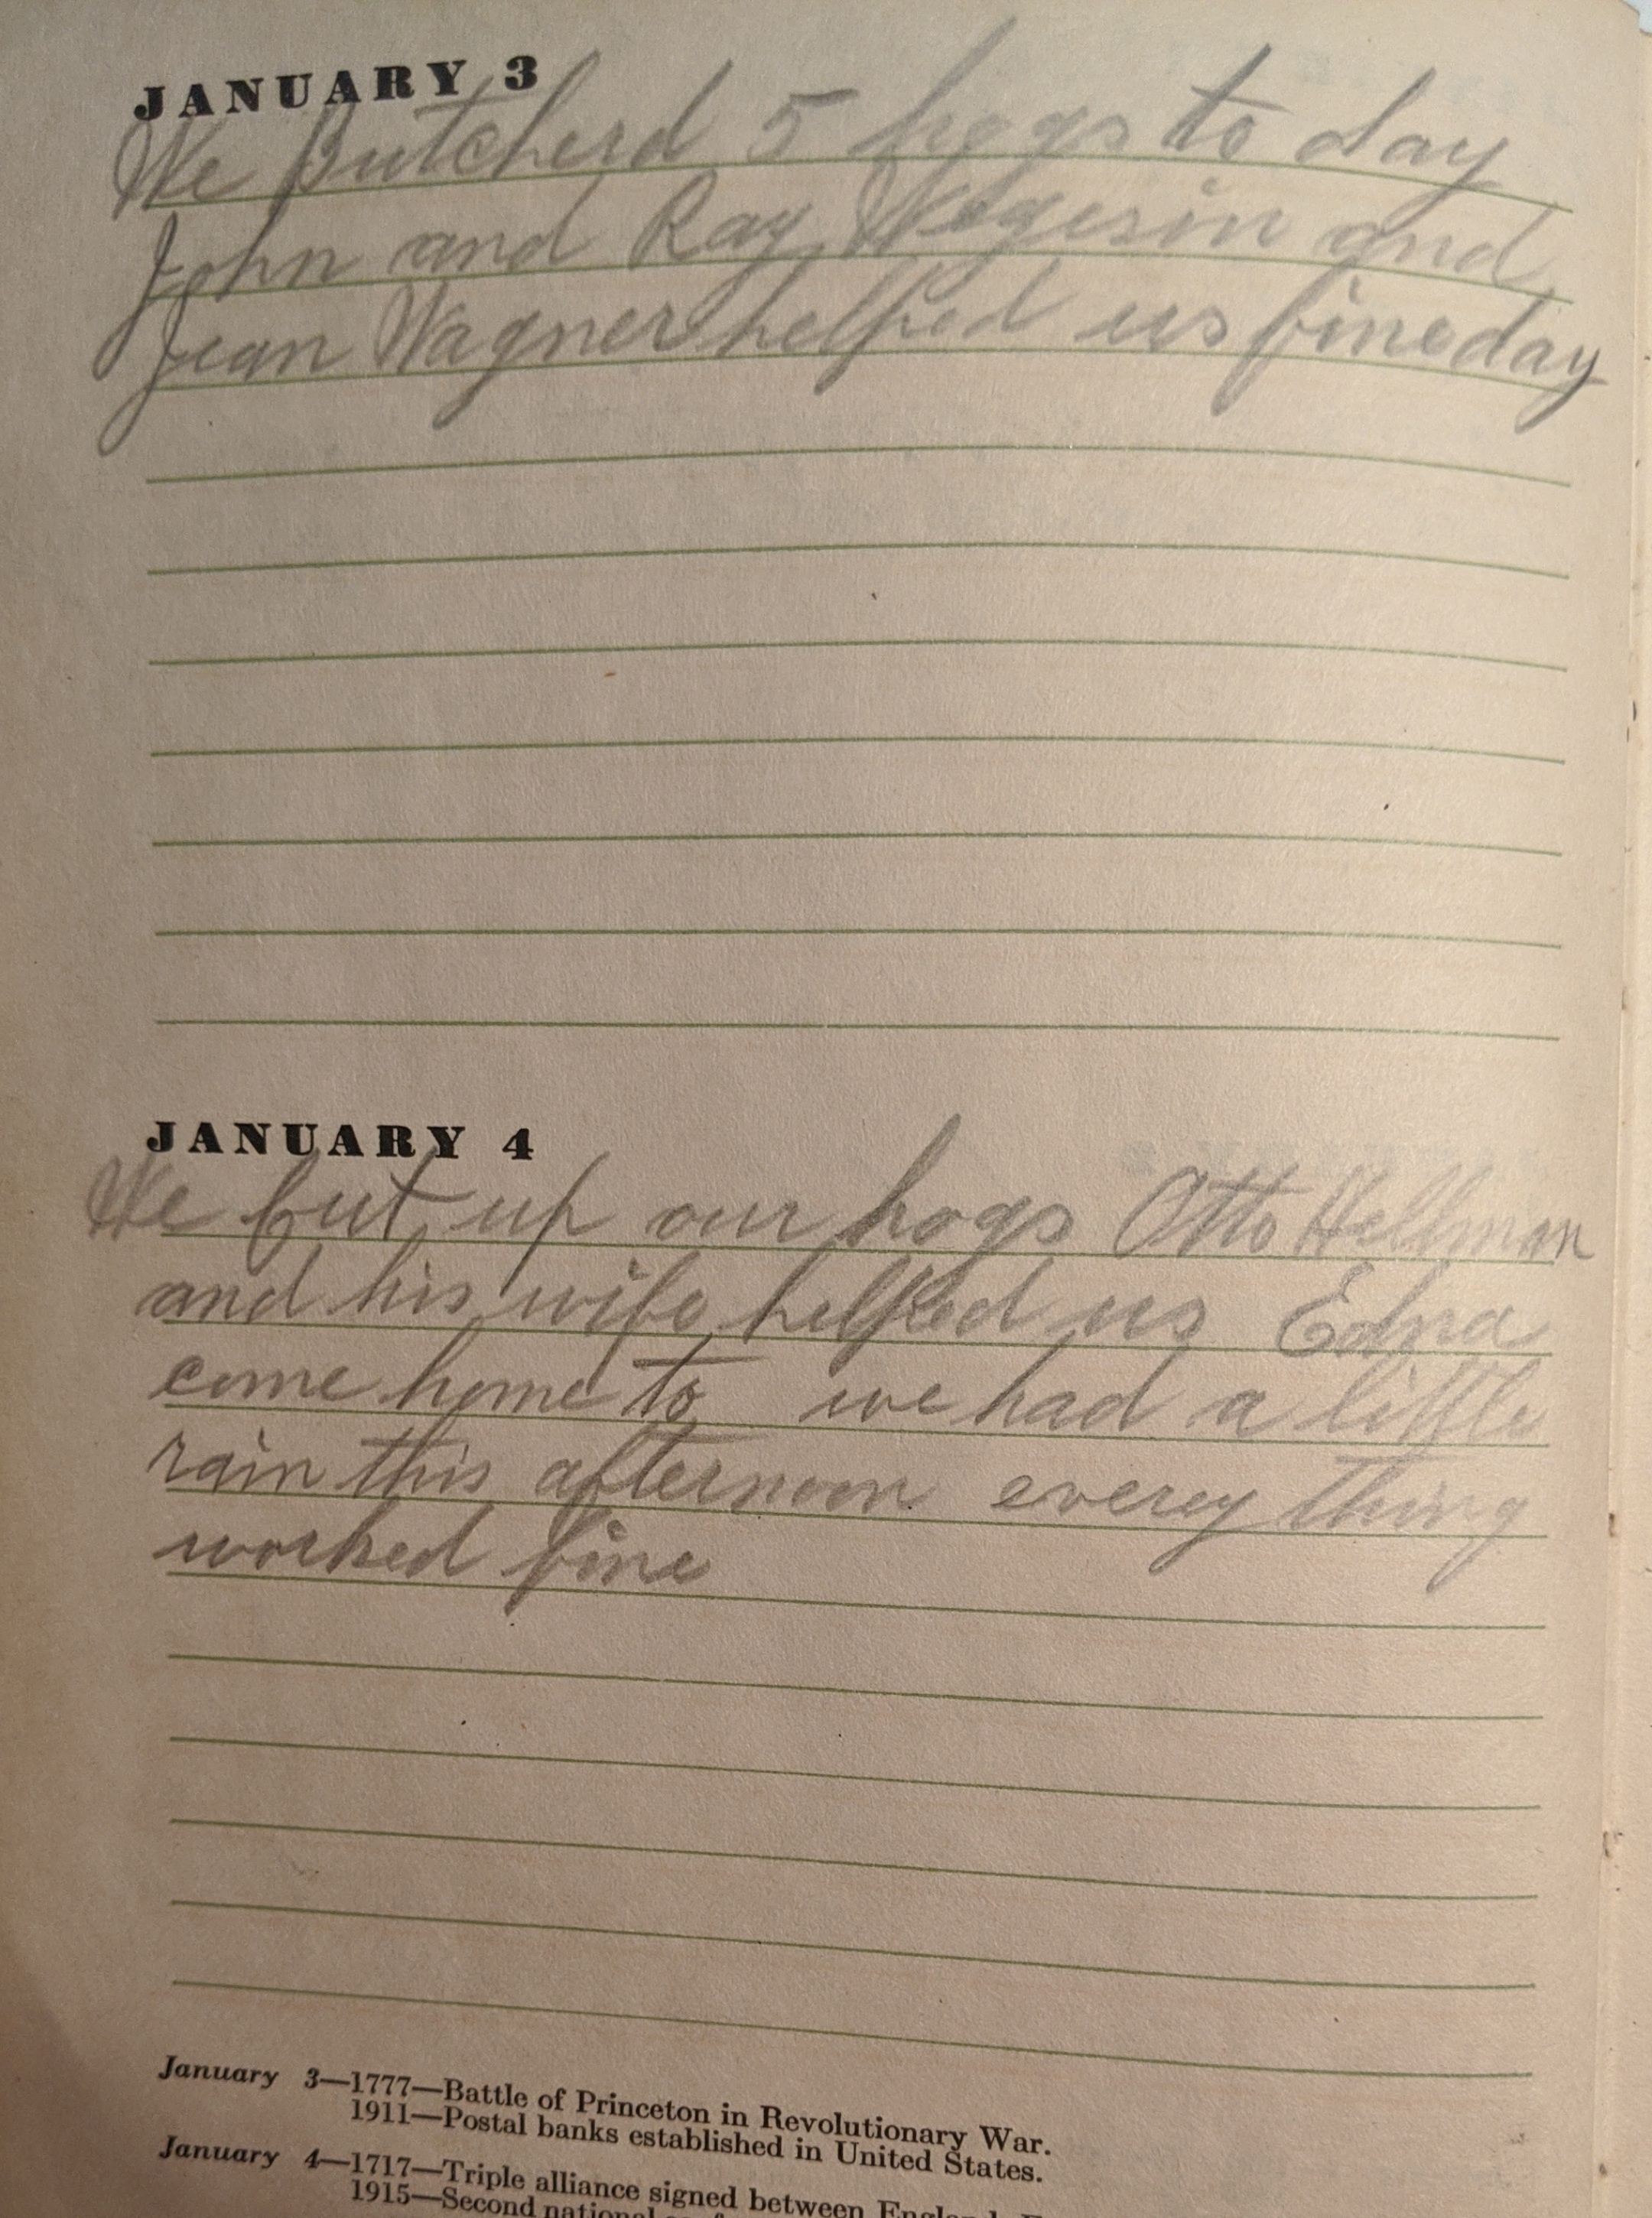 JANUARY 3
We Butcherd 5 hogs to day
John and Ray and
Jean Wagner helped us fine day
JANUARY 4
We cut up our hogs Otto Hellman
and his wife helped us Edna
come home to we had a little
rain this afternoon everey thing
worked fine
January 3—1777—Battle of Princeton in Revolutionary War.
1911—Postal banks established in United States.
January 4—1717—Triple alliance signed between
1915—Second national